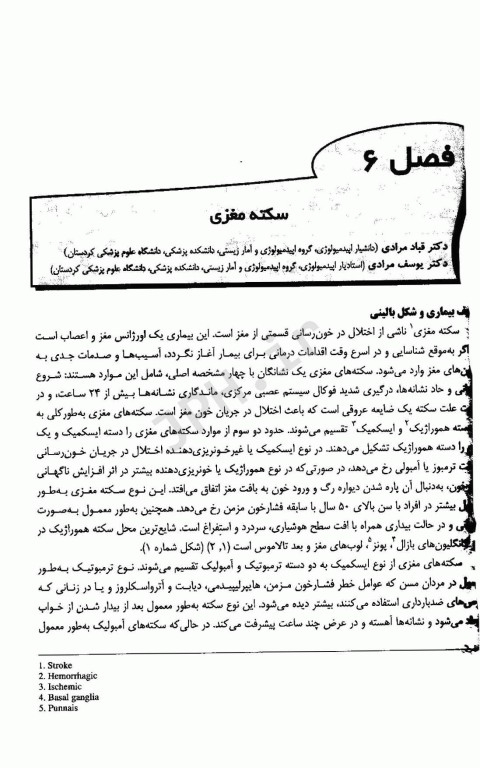 فصل ۶
سکته مغزی
دکتر قباد مرادی (دانشیار اپیدمیولوژی، گروه اپیدمیولوژی و آمار زیستی، دانشکده پزشکی، دانشگاه علوم پزشکی کردستان)
دکتر یوسف مرادی (استادیار اپیدمیولوژی، گروه اپیدمیولوژی و آمار زیستی، دانشکده پزشکی، دانشگاه علوم پزشکی کردستان)
بیماری و شکل بالینی
سکته مغزی۱ ناشی از اختلال در خون‌رسانی قسمتی از مغز است. این بیماری یک اورژانس مغز و اعصاب است
اگر به‌موقع شناسایی و در اسرع وقت اقدامات درمانی برای بیمار آغاز نگردد، آسیب‌ها و صدمات جدی به
مغز وارد می‌شود. سکته‌های مغزی یک نشانگان با چهار مشخصه اصلی، شامل این موارد هستند: شروع
و حاد نشانه‌ها، درگیری شدید فوکال سیستم عصبی مرکزی، ماندگاری نشانه‌ها بیش از ۲۴ ساعت، و در
علت سکته یک ضایعه عروقی است که باعث اختلال در جریان خون مغز است. سکته‌های مغزی به‌طورکلی به
دسته هموراژیک۲ و ایسکمیک۳ تقسیم می‌شوند. حدود دو سوم از موارد سکته‌های مغزی را دسته ایسکمیک و یک
را دسته هموراژیک تشکیل می‌دهند. در نوع ایسکمیک یا غیرخونریزی‌دهنده اختلال در جریان خون‌رسانی
ترمبوز یا آمبولی رخ می‌دهد، در صورتی‌که در نوع هموراژیک یا خونریزی‌دهنده بیشتر در اثر افزایش ناگهانی
به‌دنبال آن پاره شدن دیواره رگ و ورود خون به بافت مغز اتفاق می‌افتد. این نوع سکته مغزی به‌طور
بیشتر در افراد با سن بالای ۵۰ سال با سابقه فشارخون مزمن رخ می‌دهد. همچنین به‌طور معمول به‌صورت
و در حالت بیداری همراه با افت سطح هوشیاری، سردرد و استفراغ است. شایع‌ترین محل سکته هموراژیک در
گانگلیون‌های بازال۴، پونز۵، لوب‌های مغز و بعد تالاموس است (۱، ۲) (شکل شماره ۱).
سکته‌های مغزی از نوع ایسکمیک به دو دسته ترمبوتیک و آمبولیک تقسیم می‌شوند. نوع ترمبوتیک به‌طور
در مردان مسن که عوامل خطر فشارخون مزمن، هایپرلیپیدمی، دیابت و آترواسکلروز و یا در زنانی که
ضدبارداری استفاده می‌کنند، بیشتر دیده می‌شود. این نوع سکته به‌طور معمول بعد از بیدار شدن از خواب
می‌شود و نشانه‌ها آهسته و در عرض چند ساعت پیشرفت می‌کند. در حالی‌که سکته‌های آمبولیک به‌طور معمول
1. Stroke
2. Hemorrhagic
3. Ischemic
4. Basal ganglia
5. Punnais